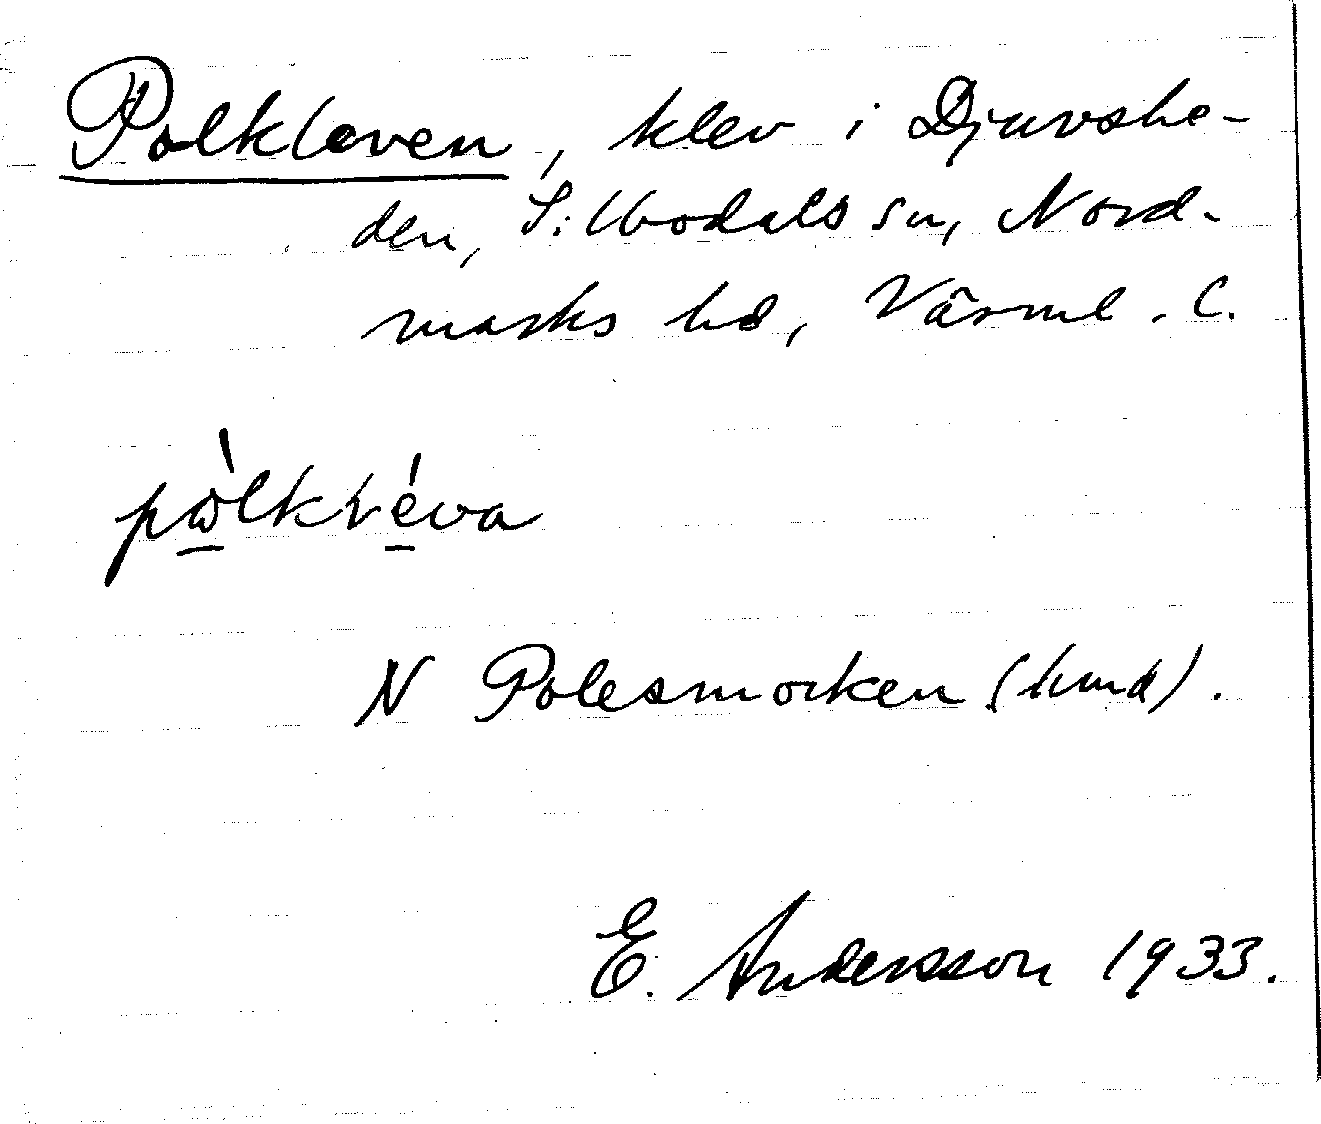 Polkleven, klev i Djuvshe-
den, Sillbodals sn, Nord-
marks hd, Värml. l.
pòlkléva
N Polesmorken (kund).
E. Andersson 1933.